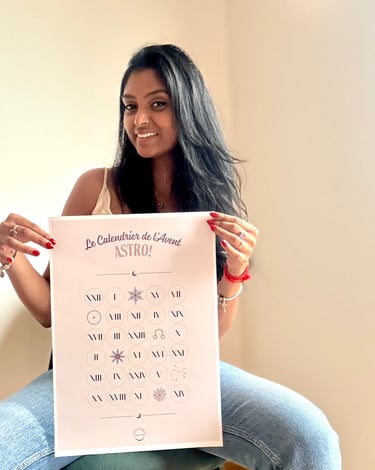 Le Calendrier de l'Avent
ASTRO!
XXII I XV VII
VIII XII IV XIX
VII III XXIII X
II XX XVI XXI
XIII IX XXIV V
XX XVIII XI XIV